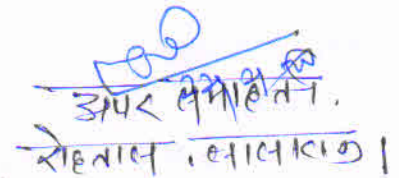 अपर समाहर्ता,
रोहतास, सासाराम।